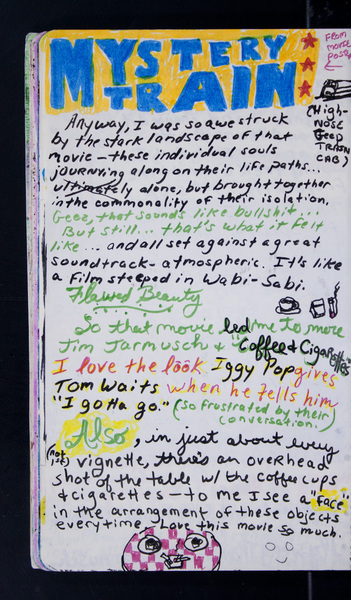 MYSTERY
TRAIN
FROM
MOVIE
POSTER
(High-
NOSE
GEEP
TRAIN
CAB)
Anyway, I was so awestruck
by the stark landscape of that
movie — these individual souls
journying along on their life paths...
ultimately alone, but brought together
in the commonality of their isolation.
Geez, that sounds like bullshit...
But still... that's what it felt
like... and all set against a great
soundtrack - atmospheric. It's like
a film steeped in Wabi-Sabi.
Flawed Beauty
So that movie led me to more
Jim Jarmusch & "Coffee & Cigarettes"
I love the look Iggy Pop gives
Tom Waits when he tells him
"I gotta go." (so frustrated by their
conversation.
Also, in just about every
(not 1st) vignette, there's an overhead
shot of the table w/ the coffee cups
& cigarettes — to me I see a "face"
in the arrangement of these objects
every time. Love this movie so much.